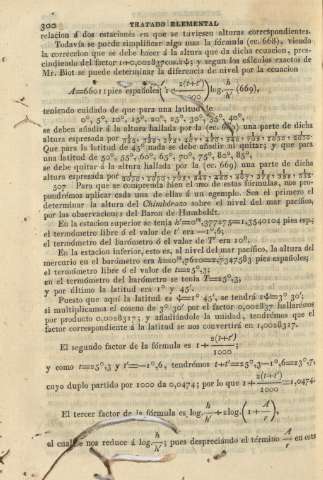 300 TRATADO ELEMENTAL
relacion á dos estaciones en que se tuviesen alturas correspondientes.
Todavía se puede simplificar algo mas la fórmula (ec. 668), viendo
la correccion que se debe hacer á la altura que da dicha ecuacion, pres-
cindiendo del factor 1+0,002837cos.2ψ; y segun los cálculos exactos de
Mr. Biot se puede determinar la diferencia de nivel por la ecuacion
A=6601 pies españoles(1+ 2(t+t') / 1000) log. h/h' (669),
teniendo cuidado de que para una latitud de
0°, 5°, 10°, 15°, 20°, 25°, 30°, 35°, 40°,
se deben añadir á la altura hallada por la (ec. 669) una parte de dicha
altura espresada por
Que para la latitud de 45° nada se debe añadir ni quitar; y que para
una latitud de 50°, 55°, 60°, 65°, 70°, 75°, 80°, 85°,
se debe quitar á la altura hallada por la (ec. 669) una parte de dicha
altura espresada por
507 Para que se comprenda bien el uso de estas fórmulas, nos pro-
pondrémos aplicar cada una de ellas á un egemplo. Sea el primero el
determinar la altura del Chimborazo sobre el nivel del mar pacífico,
por las observaciones del Baron de Humboldt.
En la estacion superior se tenia h'=0m,377275=1,3540104 pies esp.;
el termómetro libre ó el valor de t' era —1°,6;
el termómetro del barómetro ó el valor de T' era 10°.
En la estacion inferior, esto es, al nivel del mar pacífico, la altura del
mercurio en el barómetro era h=0m,76200=2,7347583 pies españoles;
el termómetro libre ó el valor de t=25°,3;
en el termómetro del barómetro se tenia T=25°,3,
y por último la latitud era 1° y 45'.
Puesto que aquí la latitud es ψ=1° 45', se tendrá 2ψ=3° 30';
si multiplicamos el coseno de 3° 30' por el factor 0,002837 hallarémos
por producto 0,0028317; y añadiéndole la unidad, tendrémos que el
factor correspondiente á la latitud se nos convertirá en 1,0028317.
El segundo factor de la fórmula es 1+ 2(t+t') / 1000;
y como t=25°,3 y t'=—1°,6, tendrémos t+t'=25°,3—1°,6=23°,7,
cuyo duplo partido por 1000 da 0,0474; por lo que 1+ 2(t+t') / 1000 =1,0474.
El tercer factor de la fórmula es log. h/h' +2log.(1+ A/r),
el cual se nos reduce á log. h/h'; pues despreciando el término A/r en este